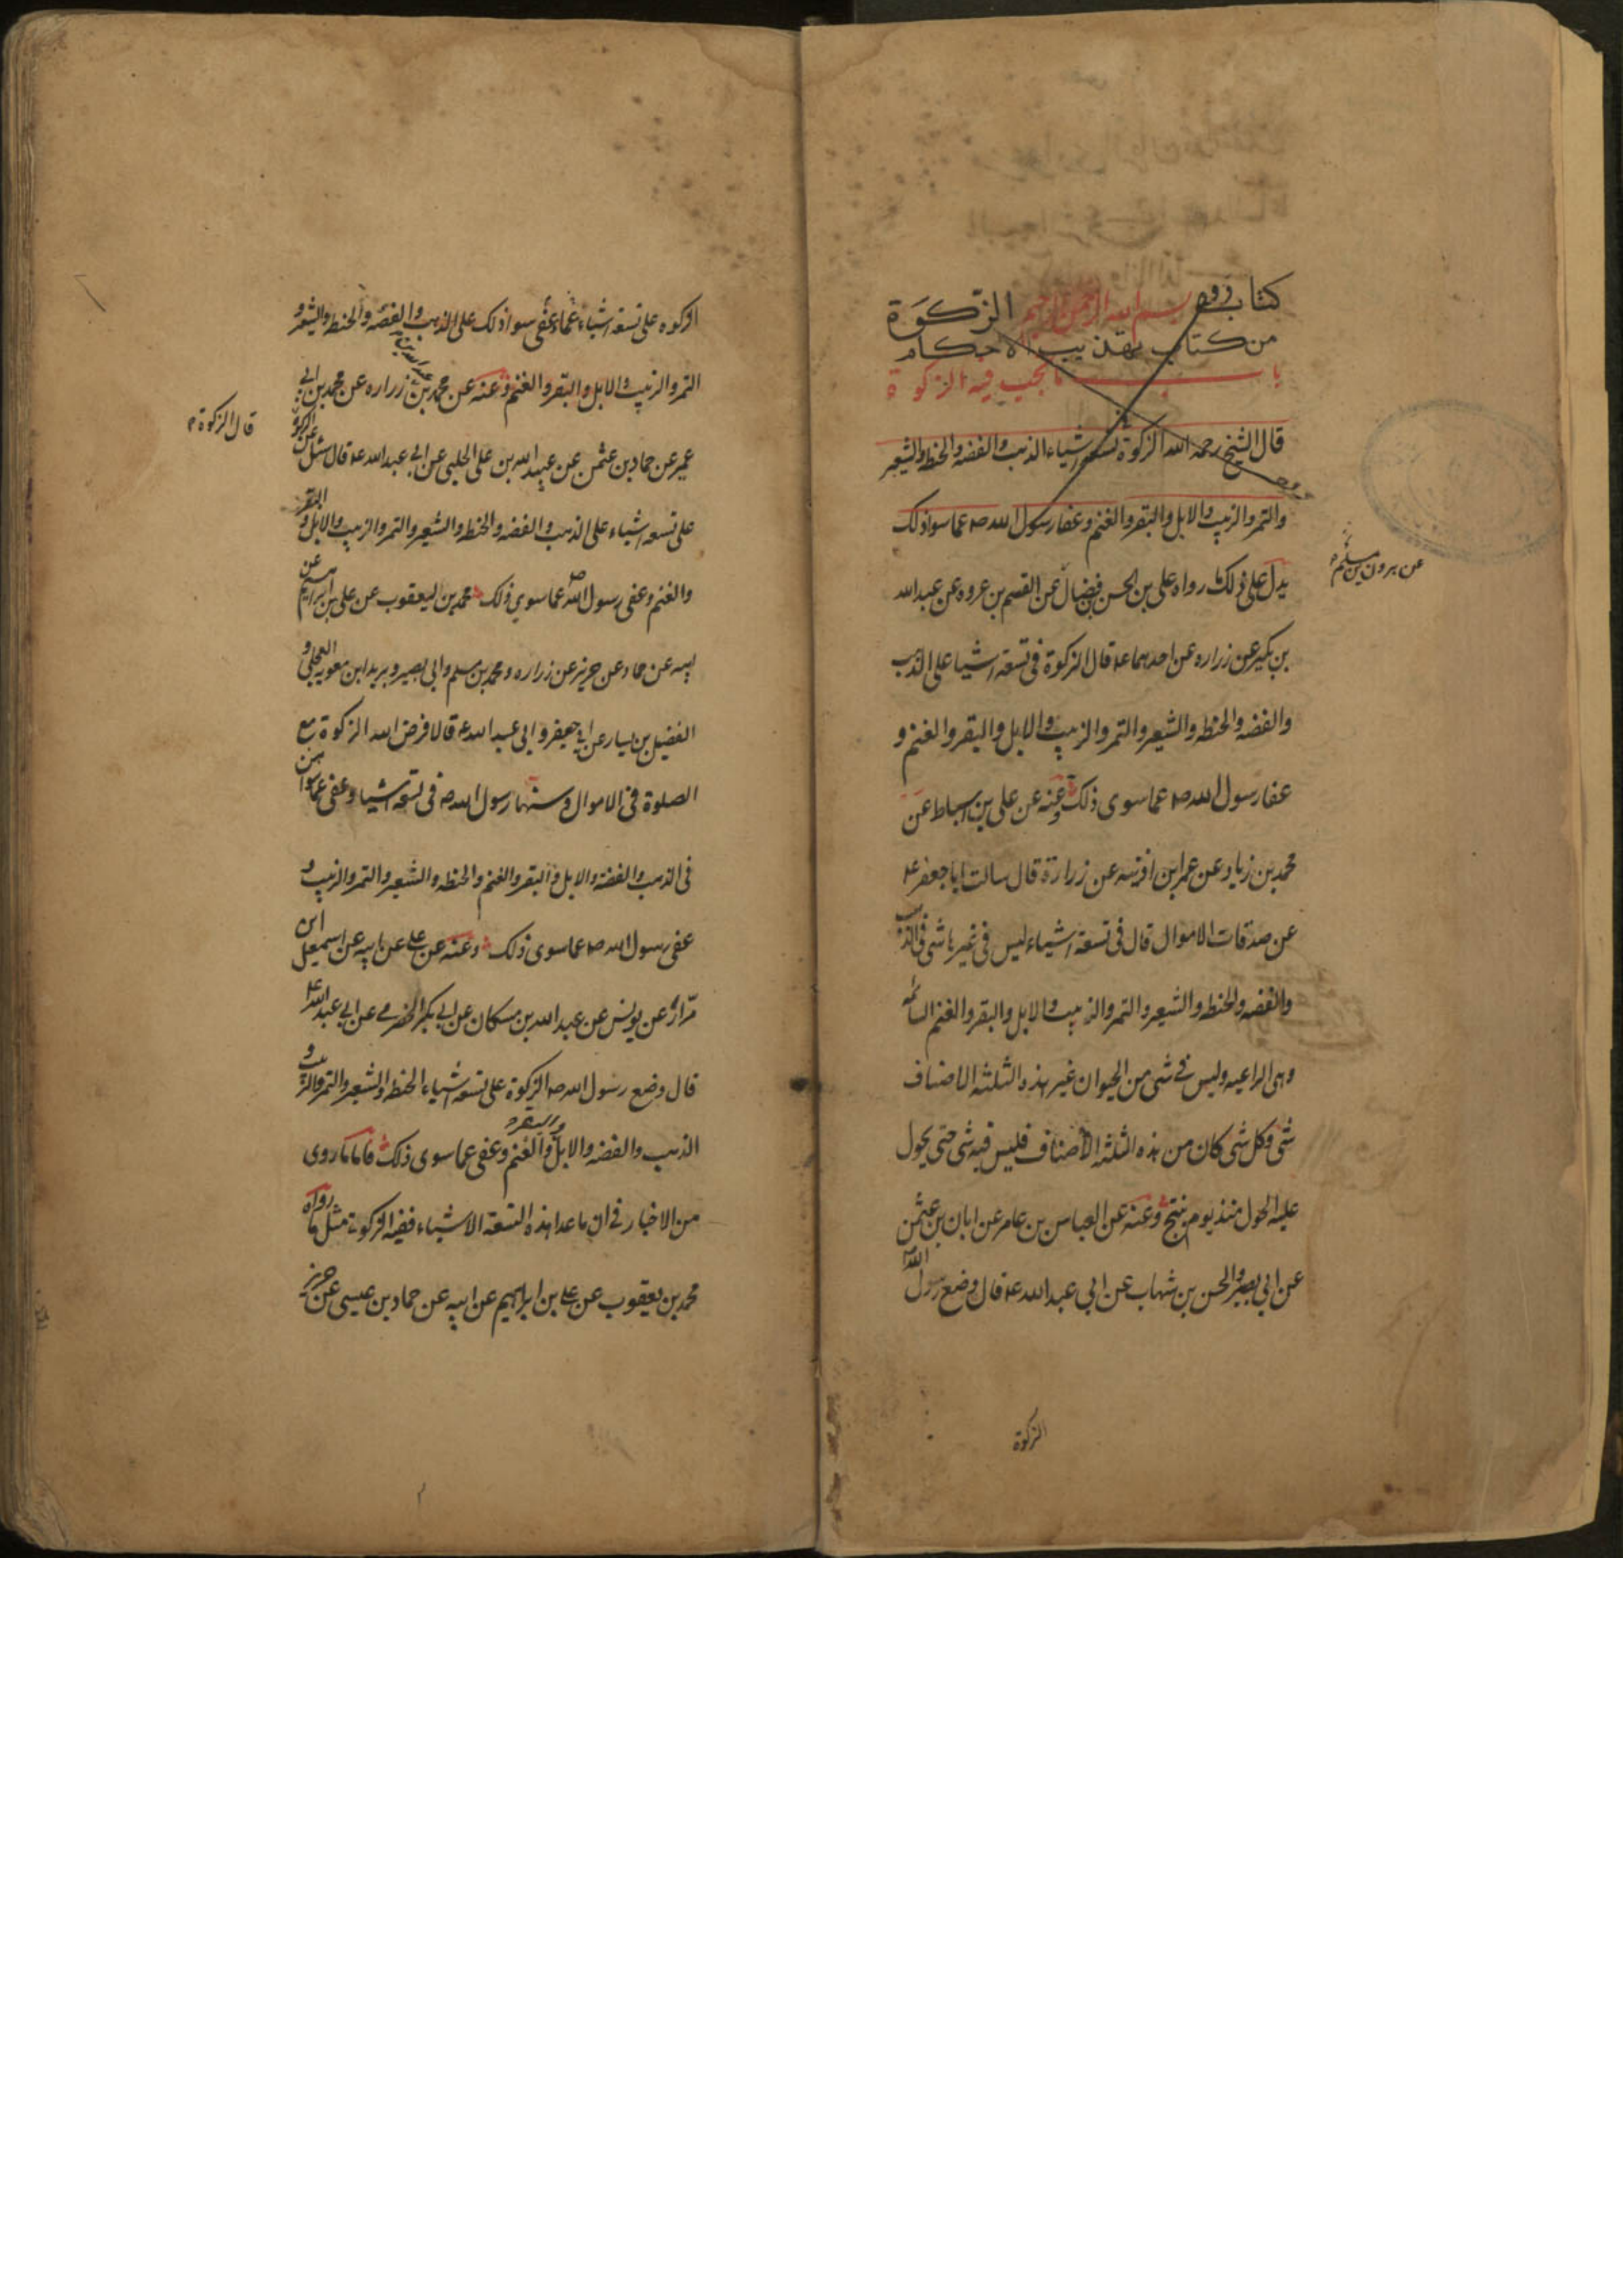 كتاب بسم الله الرحمن الرحيم الزكوة
من كتاب تهذيب الاحكام
باب ما يجب فيه الزكوة
قال الشيخ رحمه الله الزكوة تسعه اشياء الذهب والفضه والحنطه والشعير
والتمر والزبيب والابل والبقر والغنم وعفا رسول الله صه عما سوا ذلك
يدل على ذلك ما رواه على بن الحسن فضال عن القسم بن عروه عن عبدالله
بن بكير عن زراره عن احدهما عه قال الزكوة فى تسعة اشيا على الذهب
والفضه والحنطه والشعير والتمر والزبيب والابل والبقر والغنم و
عفا رسول الله صه عما سوى ذلك وعنه عن على بن اسباط عن
محمد بن زياد عن عمر ابن اذينه عن زرارة قال سالت ابا جعفر عه
عن صدقات الاموال قال فى تسعة اشياء ليس فى غيرها شى فى الذهب
والفضه والحنطه والشعير والتمر والزبيب والابل والبقر والغنم السائمه
وهى الراعيه وليس فى شى من الحيوان غير هذه الثلثه الاصناف
شى وكل شى كان من هذه الثلثه الاصناف فليس فيه شى حتى يحول
عليه الحول منذ يوم ينتج وعنه عن العباس بن عامر عن ابان بن عثمن
عن ابى بصير والحسن بن شهاب عن ابى عبد الله عه قال وضع رسول الله
الزكوة
الزكوه على تسعة اشياء وعفى عما سوا ذلك على الذهب والفضه والحنطه والشعير و
التمر والزبيب والابل والبقر والغنم وعنه عن محمد بن زراره عن محمد بن ابى
عمير عن حماد بن عثمن عن عبيد الله بن على الحلبى عن ابى عبد الله عه قال سئل عن الزكوة
قال الزكوة
على تسعه اشياء على الذهب والفضه والحنطه والشعير والتمر والزبيب والابل و البقر
والغنم وعفى رسول الله صه عما سوي ذلك محمد بن يعقوب عن على بن ابراهيم عن
ابيه عن حماد عن حريز عن زراره ومحمد بن مسلم وابى بصير وبريد ابن معويه العجلى و
الفضيل بن يسار عن ابى جعفر وابى عبد الله عه قالا فرض الله الزكوة مع
الصلوة فى الاموال وسنها رسول الله صه فى تسعة اشيا وعفى عما سواهن
فى الذهب والفضه والابل والبقر والغنم والحنطه والشعير والتمر والزبيب و
عفى رسول الله صه عما سوى ذلك وعنه عن على عن ابيه عن اسمعيل ابن
مرار عن يونس عن عبد الله بن مسكان عن ابى بكر الحضرمى عن ابى عبد الله عه
قال وضع رسول الله صه الزكوة على تسعة اشياء الحنطه والشعير والتمر والزبيب و
الذهب والفضه والابل والغنم وعفى عما سوى ذلك فاما ما روى
من الاخبار فى ان ما عدا هذه التسعة الاشياء ففيه الزكوة مثل ما رواه
محمد بن يعقوب عن على بن ابراهيم عن ابيه عن حماد بن عيسى عن حريز